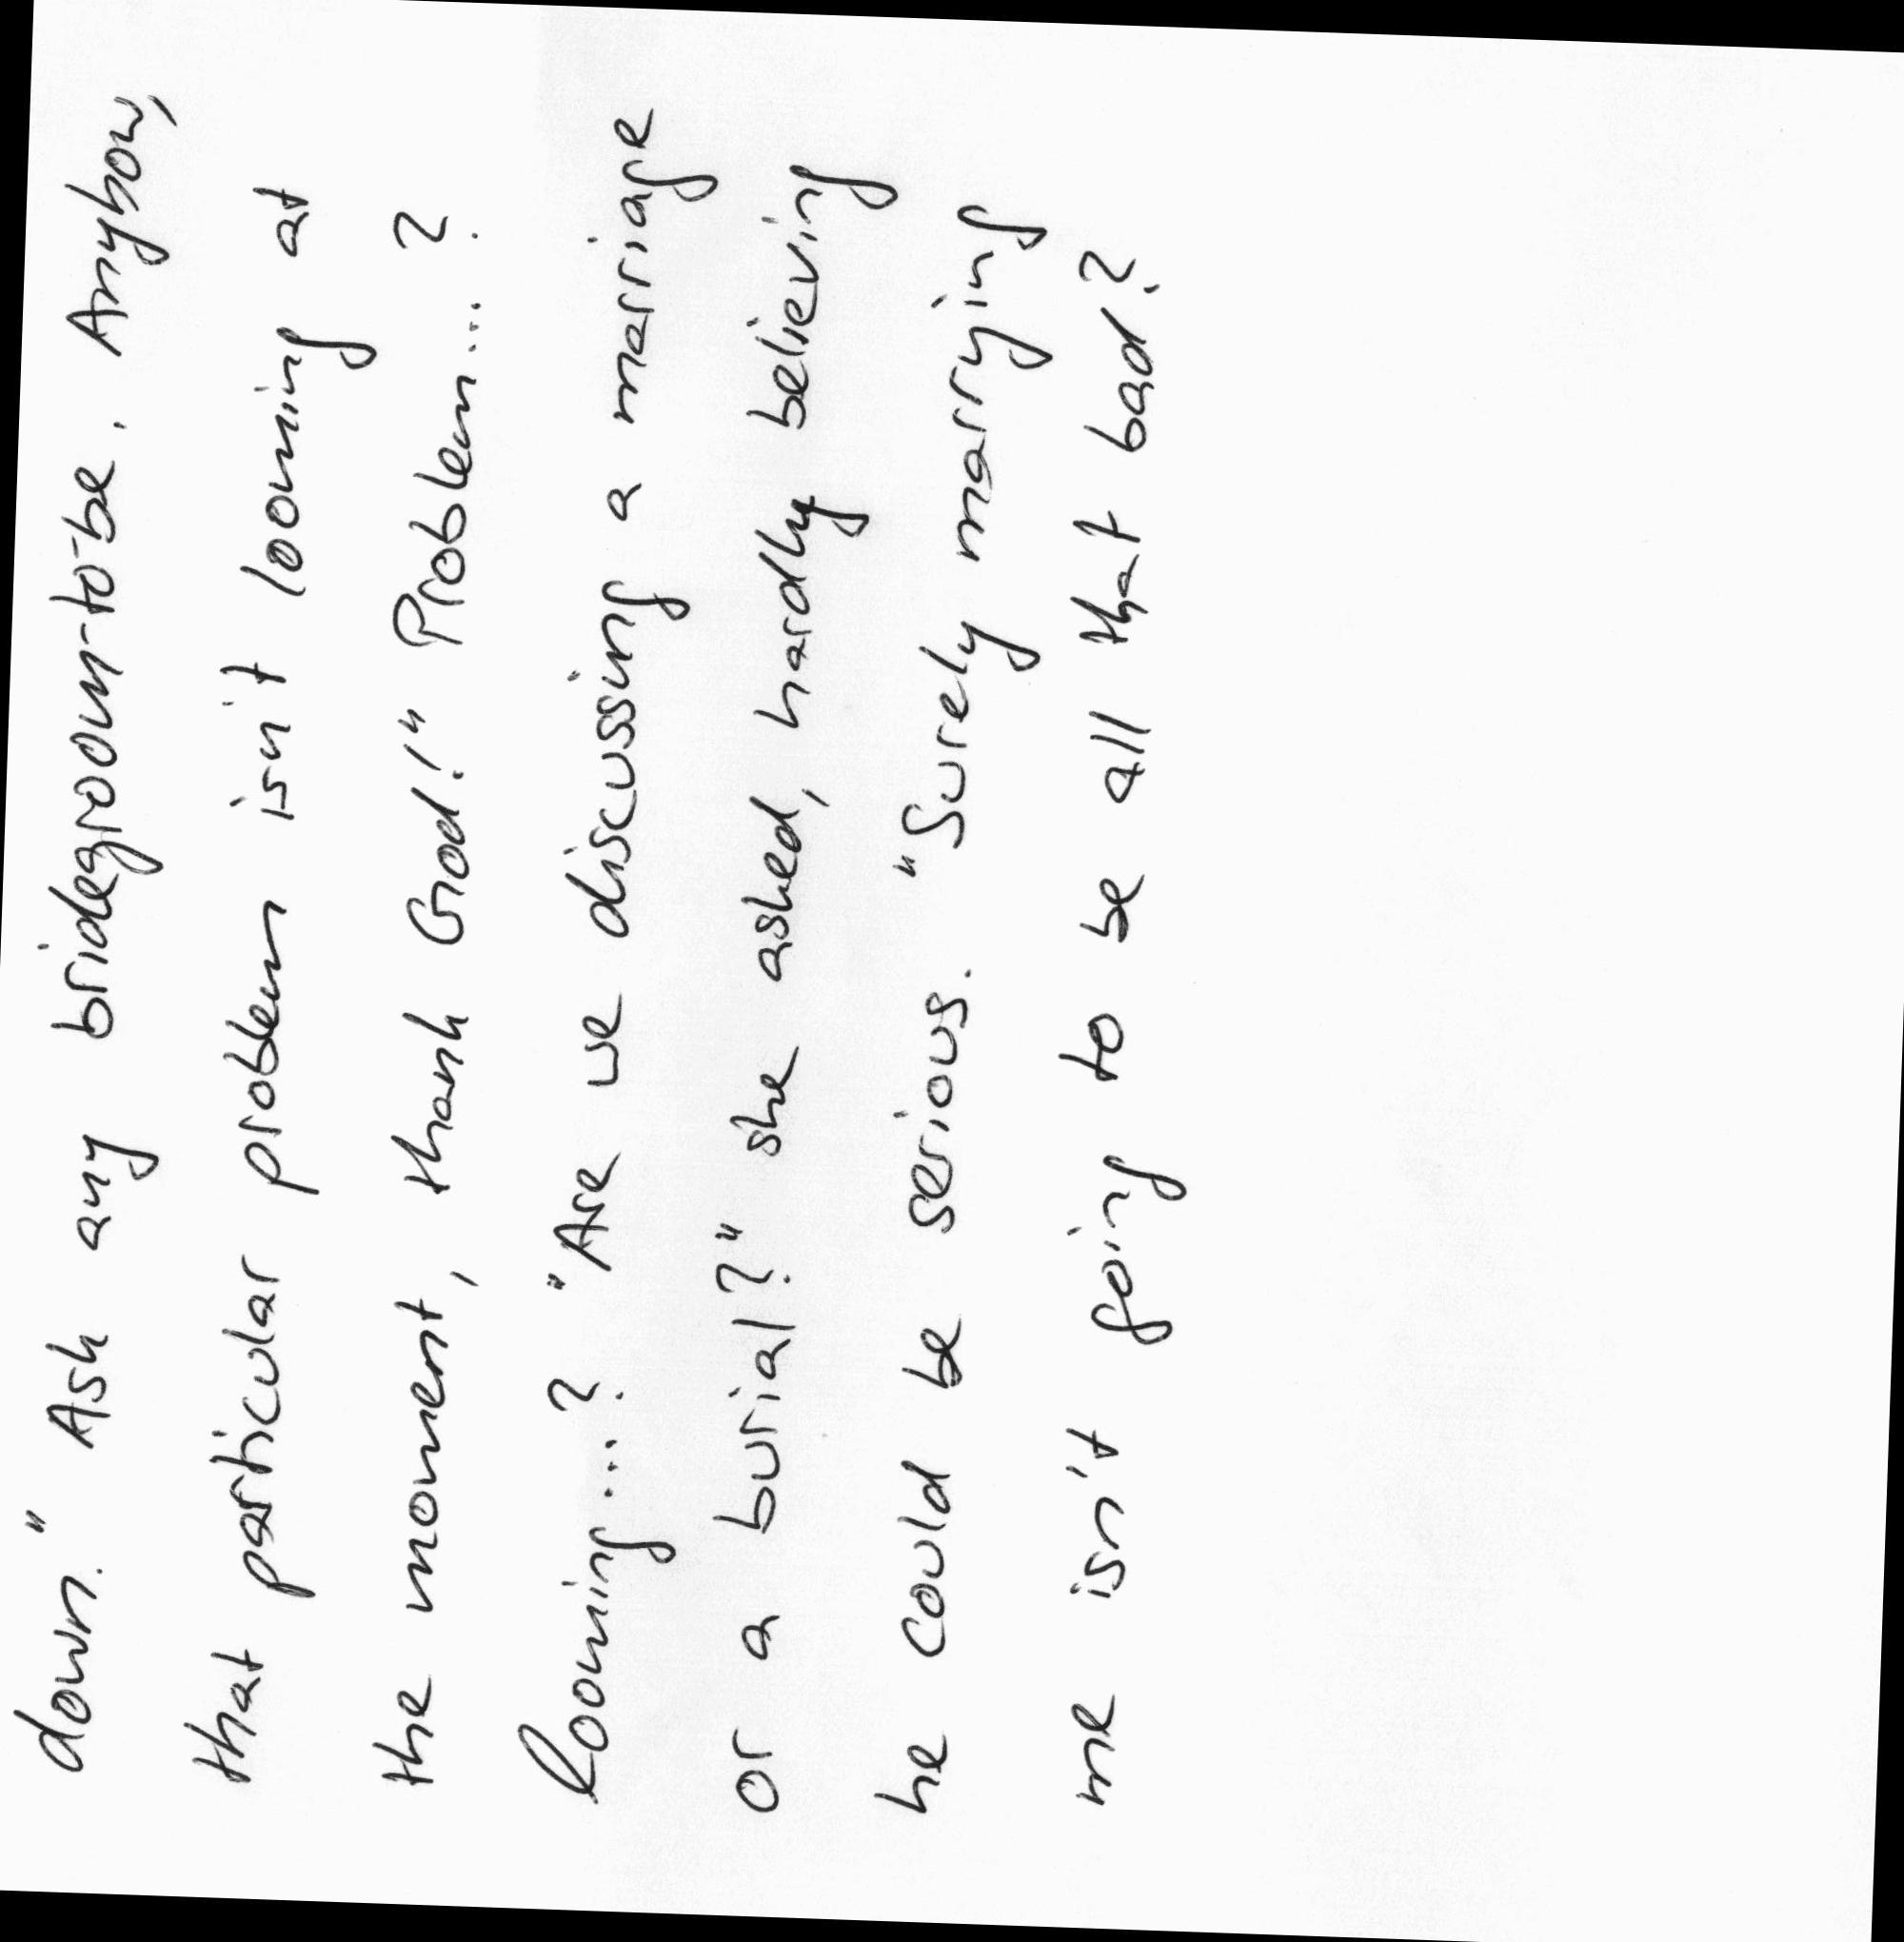 down." Ask any bridegroom-to-be. Anyhow,
that particular problem isn't looming at
the moment, thank God!" Problem... ?
looming...? "Are we discussing a marriage
or a burial?" she asked, hardly believing
he could be serious. "Surely marrying
me isn't going to be all that bad?